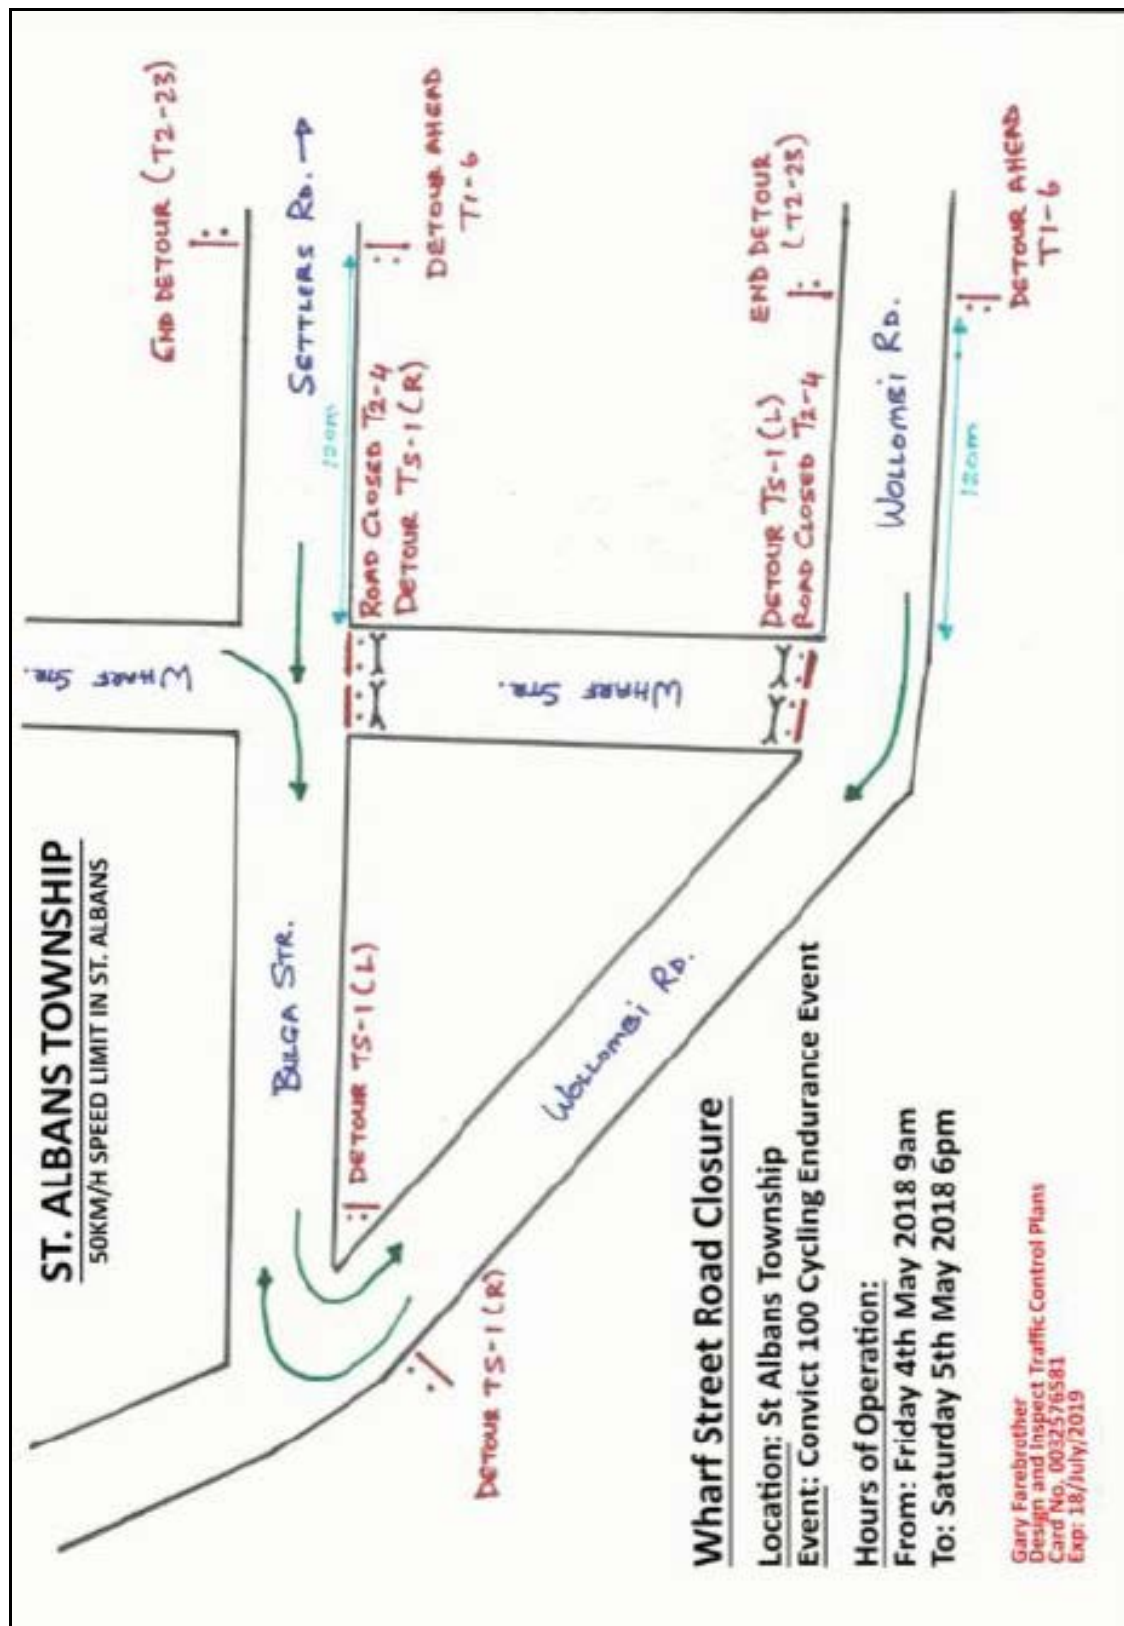 ST. ALBANS TOWNSHIP
50KM/H SPEED LIMIT IN ST. ALBANS
WHARF STR.
END DETOUR (T2-23)
BULGA STR.
SETTLERS RD. →
120m
DETOUR T5-1(L)
ROAD CLOSED T2-4
DETOUR T5-1(R)
DETOUR AHEAD
T1-6
WHARF STR.
DETOUR T5-1(R)
WOLLOMBI RD.
DETOUR T5-1(L)
ROAD CLOSED T2-4
END DETOUR
(T2-23)
WOLLOMBI RD.
120m
DETOUR AHEAD
T1-6
Wharf Street Road Closure
Location: St Albans Township
Event: Convict 100 Cycling Endurance Event
Hours of Operation:
From: Friday 4th May 2018 9am
To: Saturday 5th May 2018 6pm
Gary Farebrother
Design and Inspect Traffic Control Plans
Card No. 0032576581
Exp: 18/July/2019